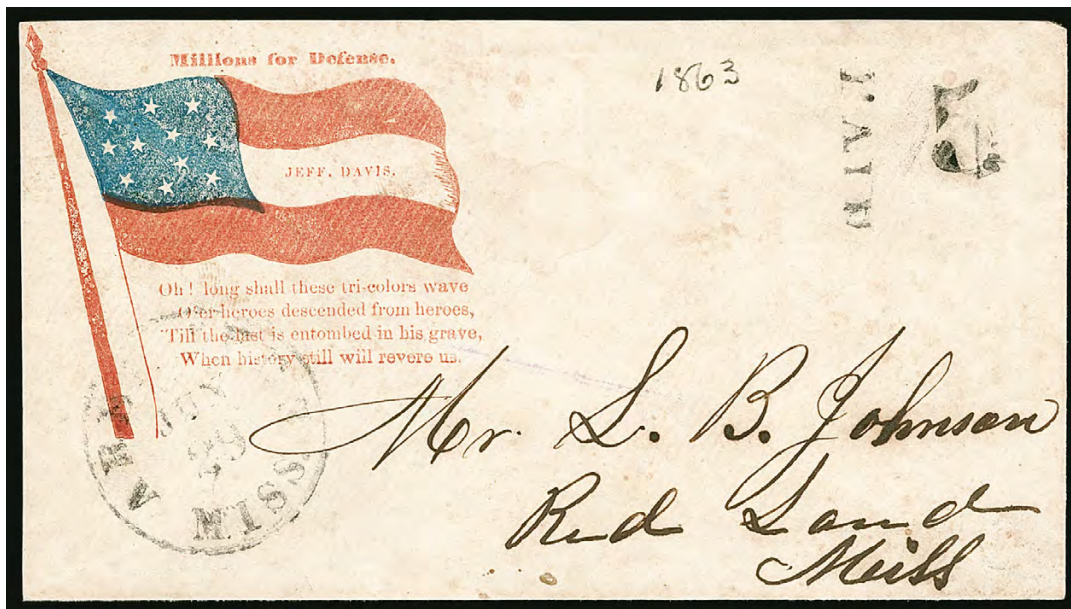 Millions for Defense.
1863
PAID
5
JEFF. DAVIS.
Oh! long shall these tri-colors wave
O'er heroes descended from heroes,
'Till the last is entombed in his grave,
When history still will revere us.
29
MISS
Mr. L. B. Johnson
Red Land
Miss